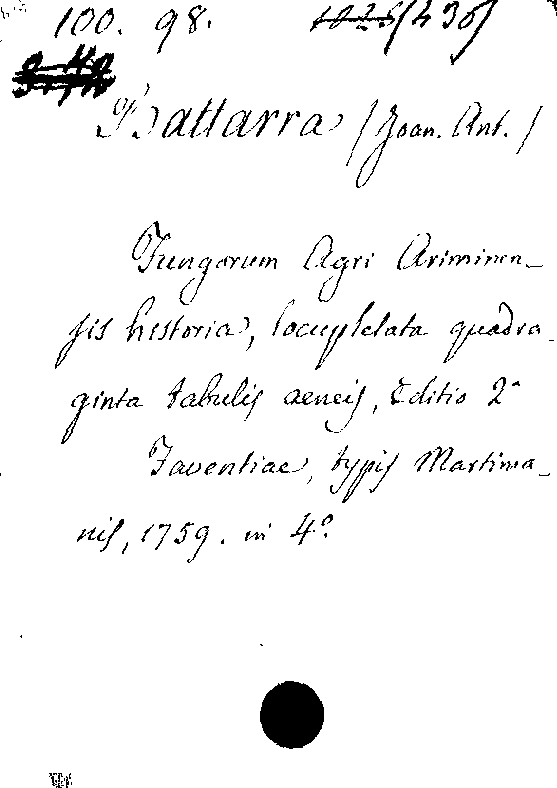 100. 98. (436)
Battarra (Joan. Ant.)
Fungorum Agri Ariminen-
sis historia, locupletata quadra-
ginta tabulis aeneis, Editio 2a
Faventiae, typis Martinia-
nis, 1759. in 4o.